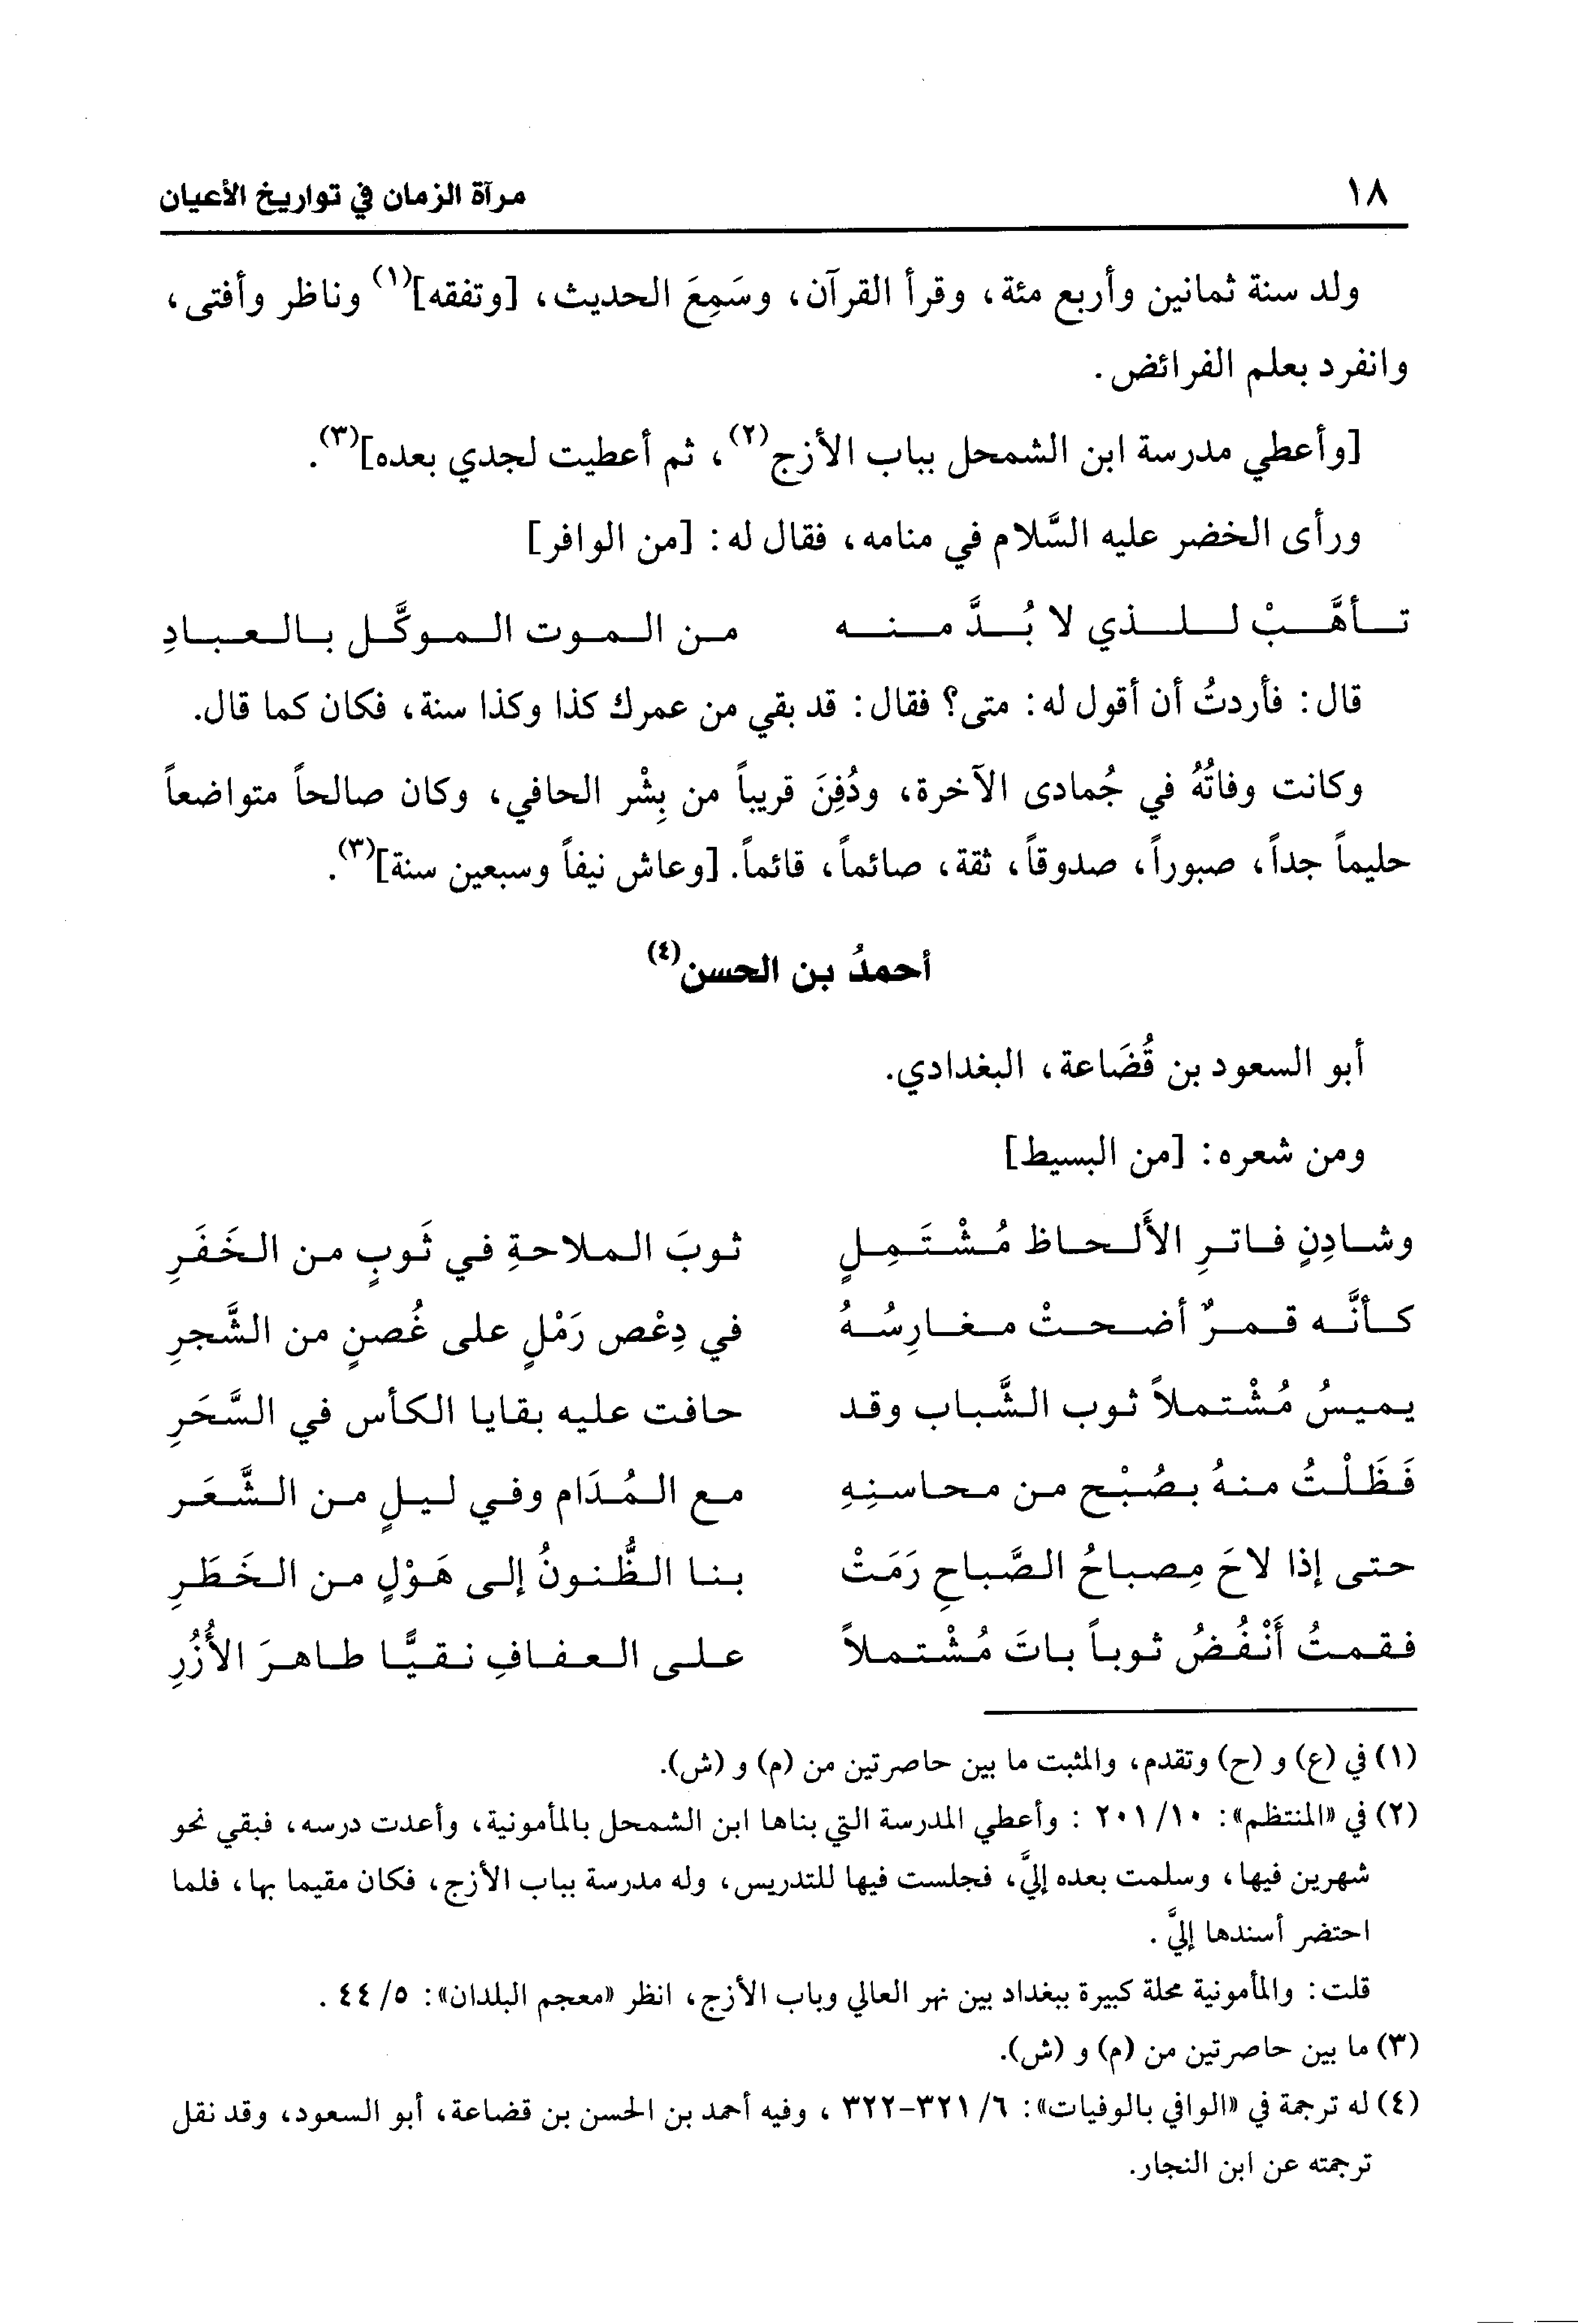 ١٨ مرآة الزمان في تواريخ الأعيان
ولد سنة ثمانين وأربع مئة، وقرأ القرآن، وسَمِعَ الحديث، [وتفقه](١) وناظر وأفتى،
وانفرد بعلم الفرائض.
[وأعطي مدرسة ابن الشمحل بباب الأزج(٢)، ثم أعطيت لجدي بعده](٣).
ورأى الخضر عليه السَّلام في منامه، فقال له: [من الوافر]
تأهَّبْ للذي لا بُدَّ منه من الموت الموكَّل بالعبادِ
قال: فأردتُ أن أقول له: متى؟ فقال: قد بقي من عمرك كذا وكذا سنة، فكان كما قال.
وكانت وفاتُهُ في جُمادى الآخرة، ودُفِنَ قريباً من بِشْر الحافي، وكان صالحاً متواضعاً
حليماً جداً، صبوراً، صدوقاً، ثقة، صائماً، قائماً. [وعاش نيفاً وسبعين سنة](٣).
أحمدُ بن الحسن(٤)
أبو السعود بن قُضَاعة، البغدادي.
ومن شعره: [من البسيط]
وشادِنٍ فاترِ الأَلحاظ مُشْتَمِلٍ ثوبَ الملاحةِ في ثَوبٍ من الخَفَرِ
كأنَّه قمرٌ أضحتْ مغارِسُهُ في دِعْص رَمْلٍ على غُصنٍ من الشَّجرِ
يميسُ مُشْتملاً ثوب الشَّباب وقد حافت عليه بقايا الكأس في السَّحَرِ
فَظَلْتُ منهُ بصُبْح من محاسنِهِ مع المُدَام وفي ليلٍ من الشَّعَر
حتى إذا لاحَ مِصباحُ الصَّباحِ رَمَتْ بنا الظُّنونُ إلى هَوْلٍ من الخَطَرِ
فقمتُ أَنْفُضُ ثوباً باتَ مُشْتملاً على العفافِ نقيًّا طاهرَ الأُزُرِ
(١) في (ع) و (ح) وتقدم، والمثبت ما بين حاصرتين من (م) و (ش).
(٢) في «المنتظم»: ١٠/ ٢٠١ : وأعطي المدرسة التي بناها ابن الشمحل بالمأمونية، وأعدت درسه، فبقي نحو
شهرين فيها، وسلمت بعده إليَّ، فجلست فيها للتدريس، وله مدرسة بباب الأزج، فكان مقيما بها، فلما
احتضر أسندها إليَّ.
قلت: والمأمونية محلة كبيرة ببغداد بين نهر العالي وباب الأزج، انظر «معجم البلدان»: ٥/ ٤٤ .
(٣) ما بين حاصرتين من (م) و (ش).
(٤) له ترجمة في «الوافي بالوفيات»: ٦/ ٣٢١-٣٢٢ ، وفيه أحمد بن الحسن بن قضاعة، أبو السعود، وقد نقل
ترجمته عن ابن النجار.